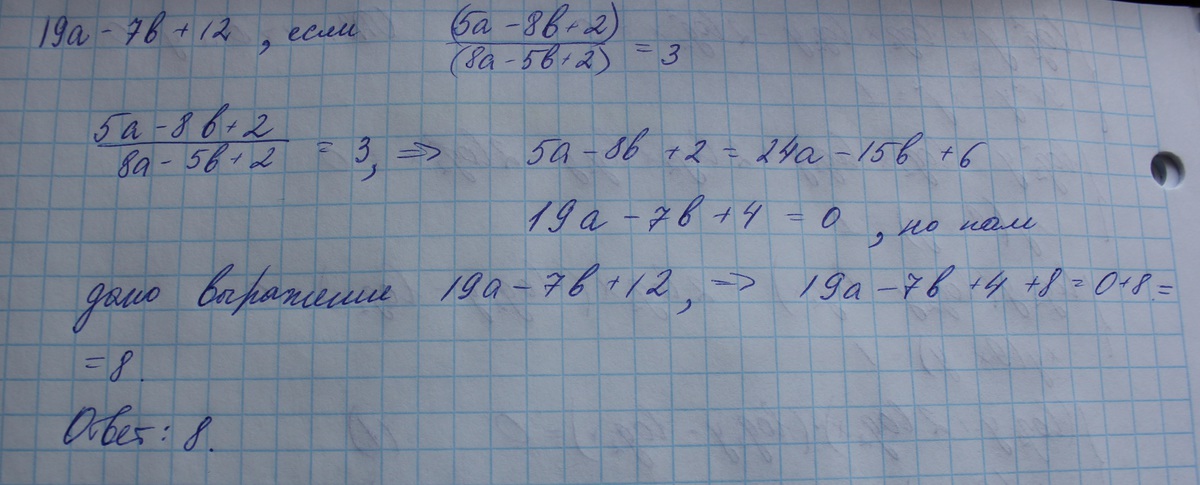 19a - 7b + 12 , если (5a - 8b + 2) / (8a - 5b + 2) = 3
5a - 8b + 2 / 8a - 5b + 2 = 3, => 5a - 8b + 2 = 24a - 15b + 6
19a - 7b + 4 = 0 , но нам
дано выражение 19a - 7b + 12, => 19a - 7b + 4 + 8 = 0 + 8 =
= 8.
Ответ: 8.